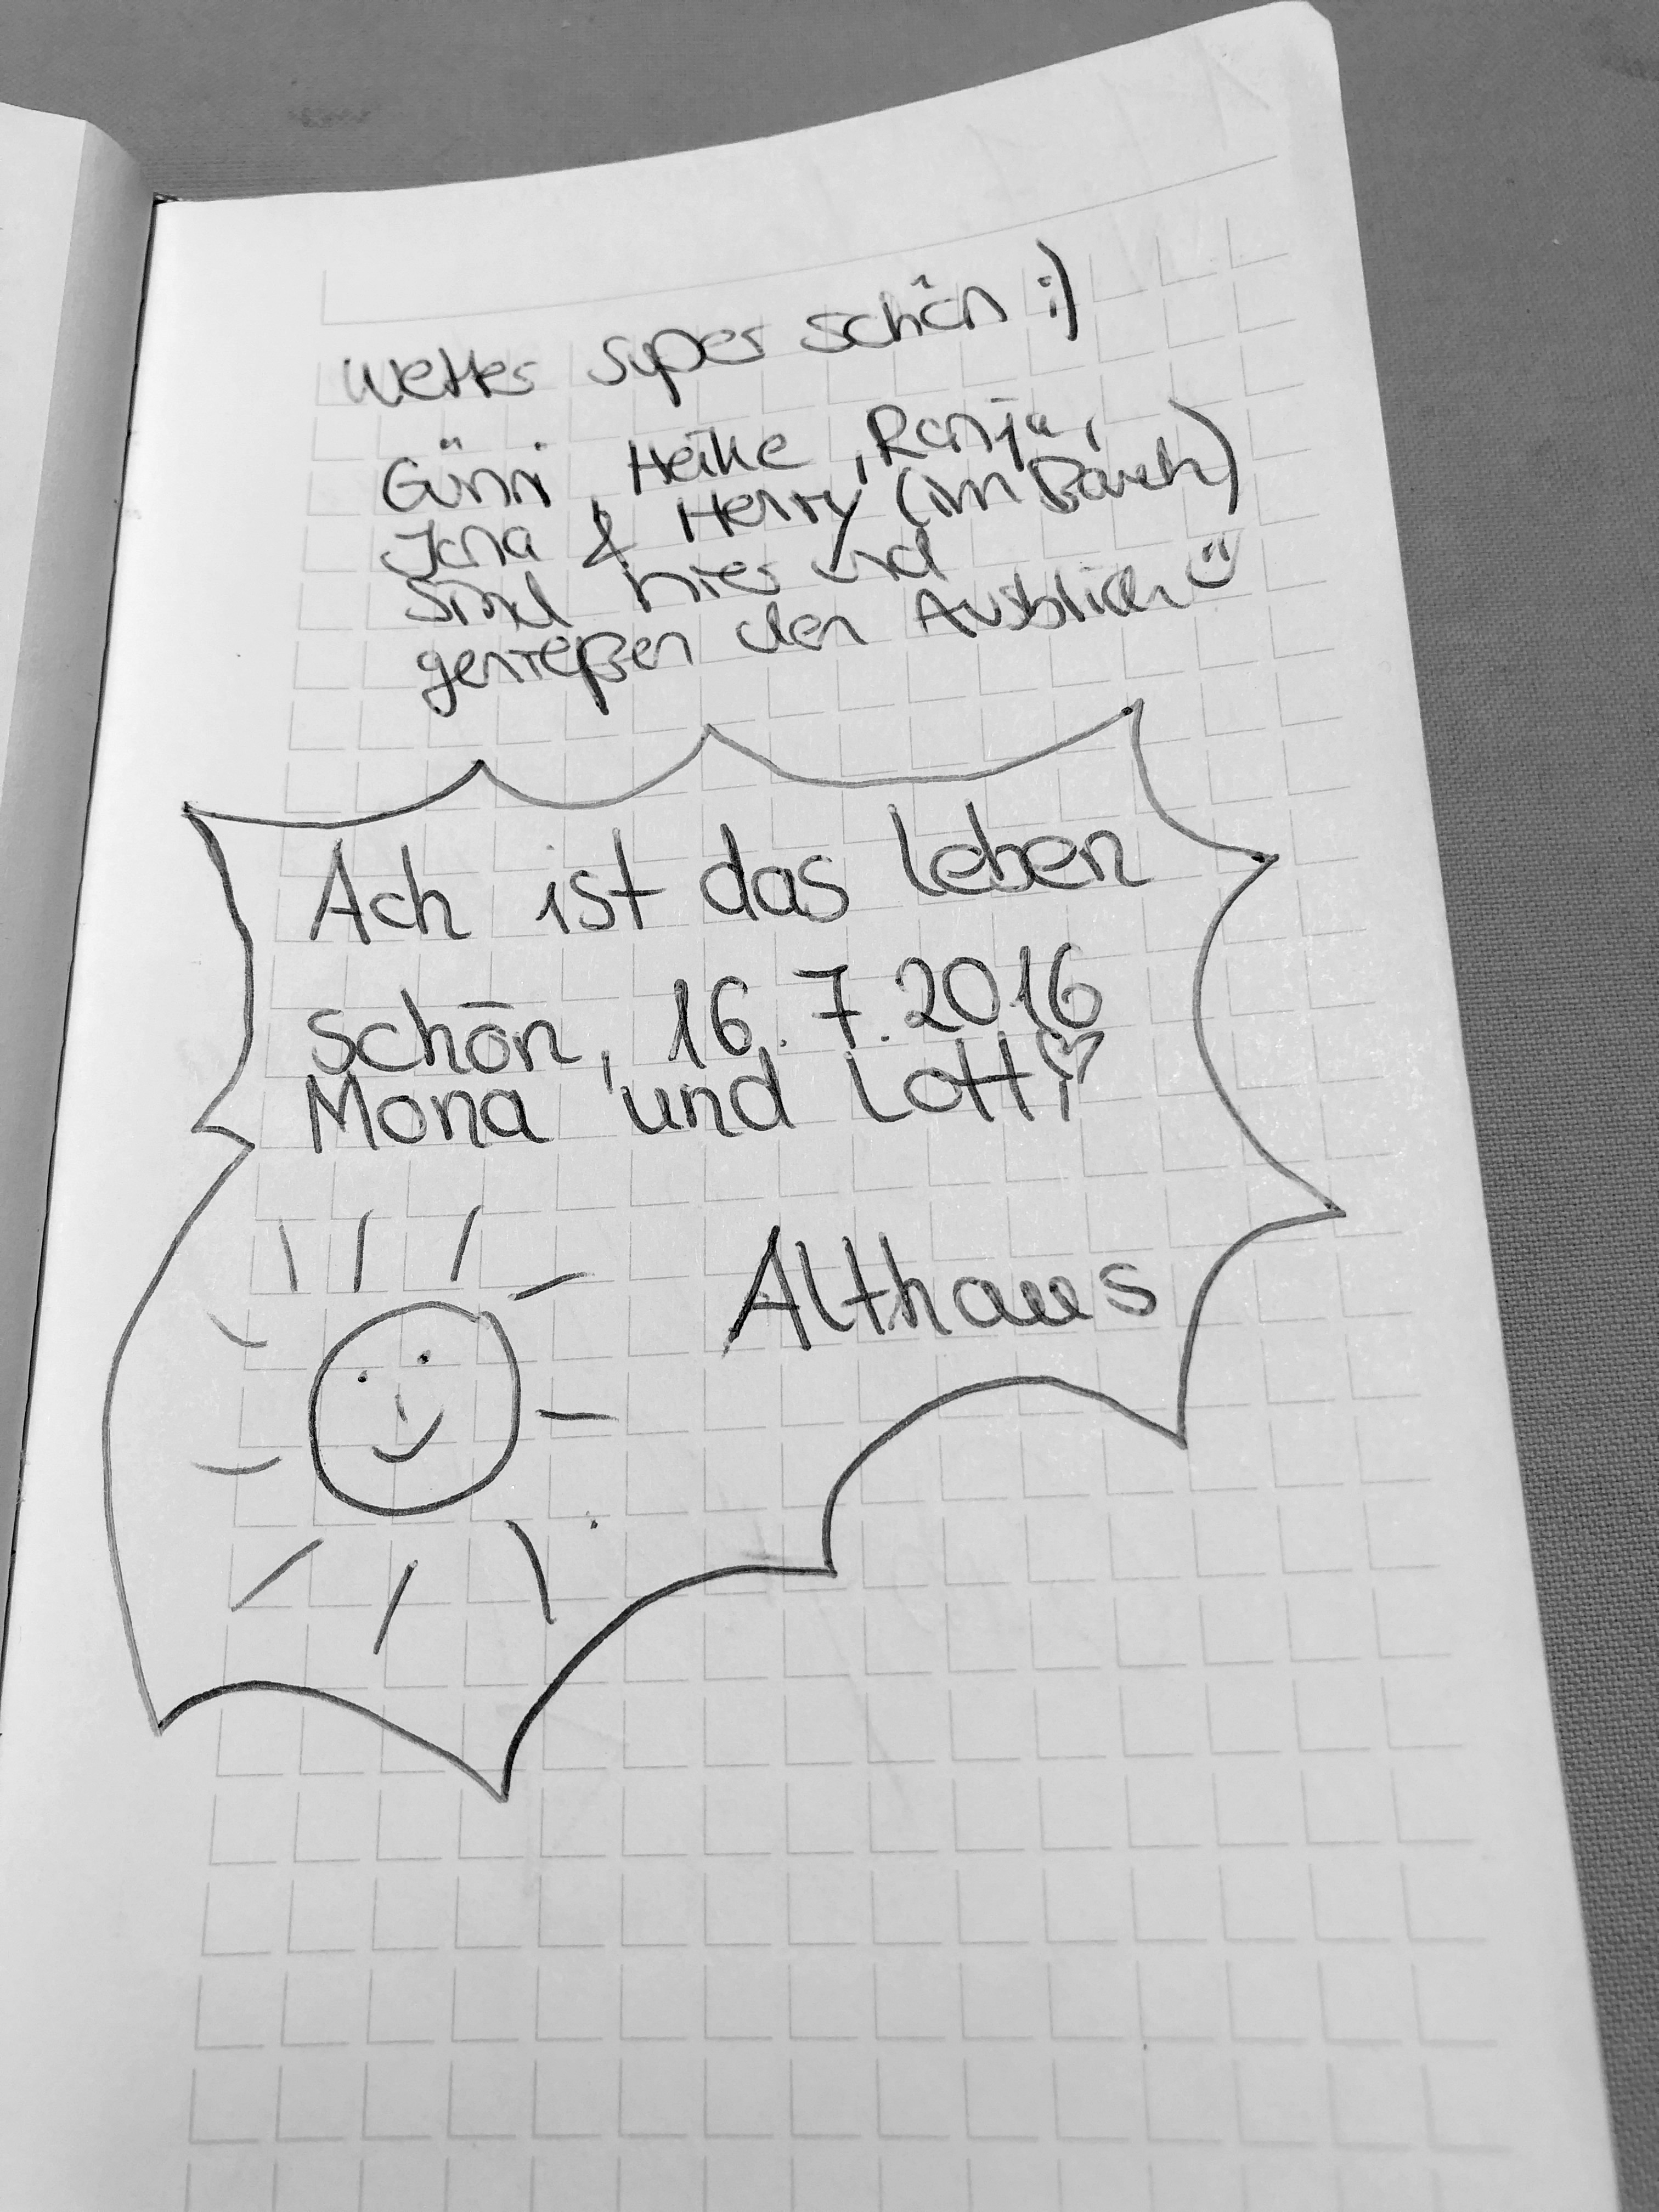 Wetter super schön :)
Günni, Heike, Ronja,
Jana & Henry (im Bauch)
sind hier und
genießen den Ausblick
Ach ist das Leben
schön, 16.7.2016
Mona und Lotti
Althaus